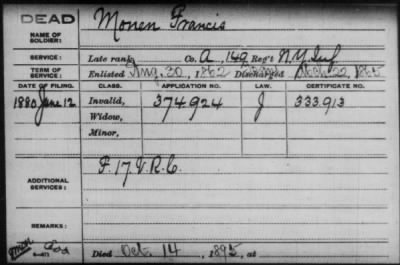 DEAD
NAME OF SOLDIER: Monen Francis
SERVICE: Late rank, Co. A, 149 Reg't N.Y. Inf
TERM OF SERVICE: Enlisted Aug. 30, 1862 Discharged 22, 1865
DATE OF FILING. CLASS. APPLICATION NO. LAW. CERTIFICATE NO.
1880 June 12 Invalid, 374.924 J 333.913
Widow,
Minor,
ADDITIONAL SERVICES: F. 17 V.R.C.
REMARKS:
Died Oct. 14, 1895, at